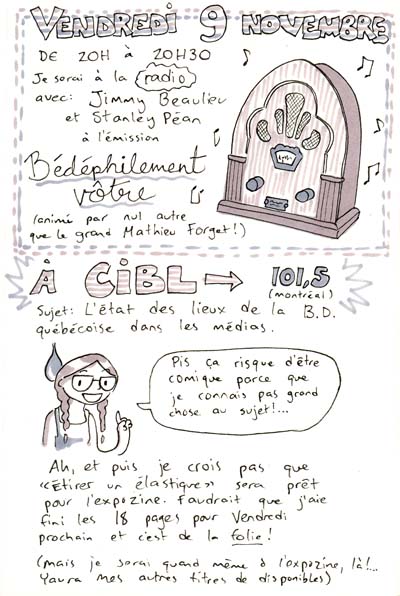 VENDREDI 9 NOVEMBRE
DE 20H à 20H30
Je serai à la radio
avec: Jimmy Beaulieu
et Stanley Péan
à l'émission
Bédéphilement
vôtre
(animé par nul autre
que le grand Mathieu Forget!)
À CIBL → 101,5
(montréal)
Sujet: L'état des lieux de la B.D.
québécoise dans les médias.
Pis ça risque d'être
comique parce que
je connais pas grand
chose au sujet!...
Ah, et puis je crois pas que
«Étirer un élastique» sera prêt
pour l'expozine. Faudrait que j'aie
fini les 18 pages pour Vendredi
prochain et c'est de la folie!
(mais je serai quand même à l'expozine, là!...
Yaura mes autres titres de disponibles)